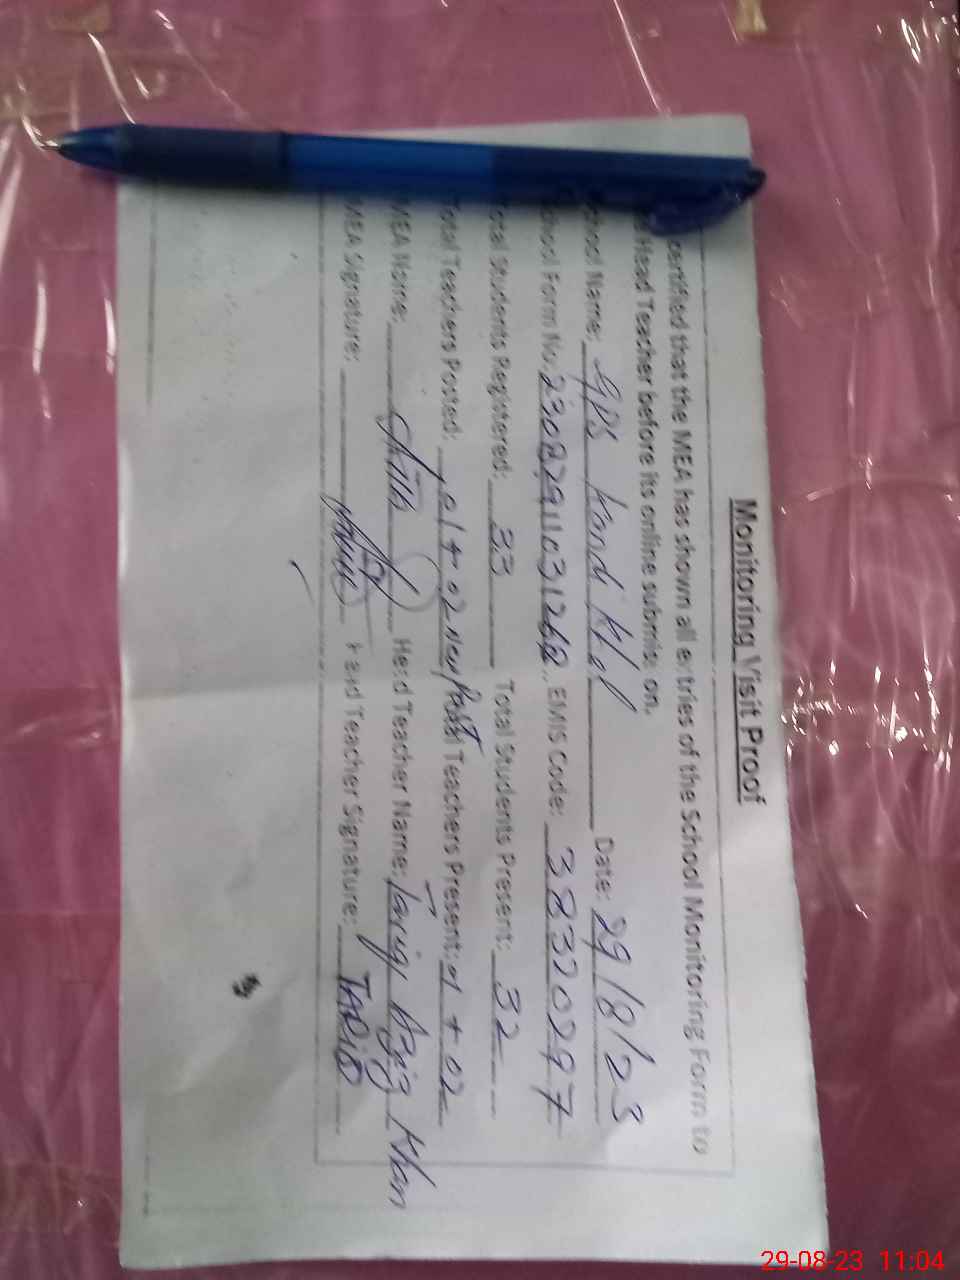 Monitoring Visit Proof
certified that the MEA has shown all entries of the School Monitoring Form to
Head Teacher before its online submission.
School Name: GPS Kandi Khel Date: 29/8/23
School Form No. EMIS Code: 38320297
Total Students Registered: 33 Total Students Present: 32
Total Teachers Posted: 01 + 02 New Post Teachers Present: 01 + 02
MEA Name: Head Teacher Name: Tariq Aziz Khan
MEA Signature: Head Teacher Signature: TARIQ
29-08-23 11:04